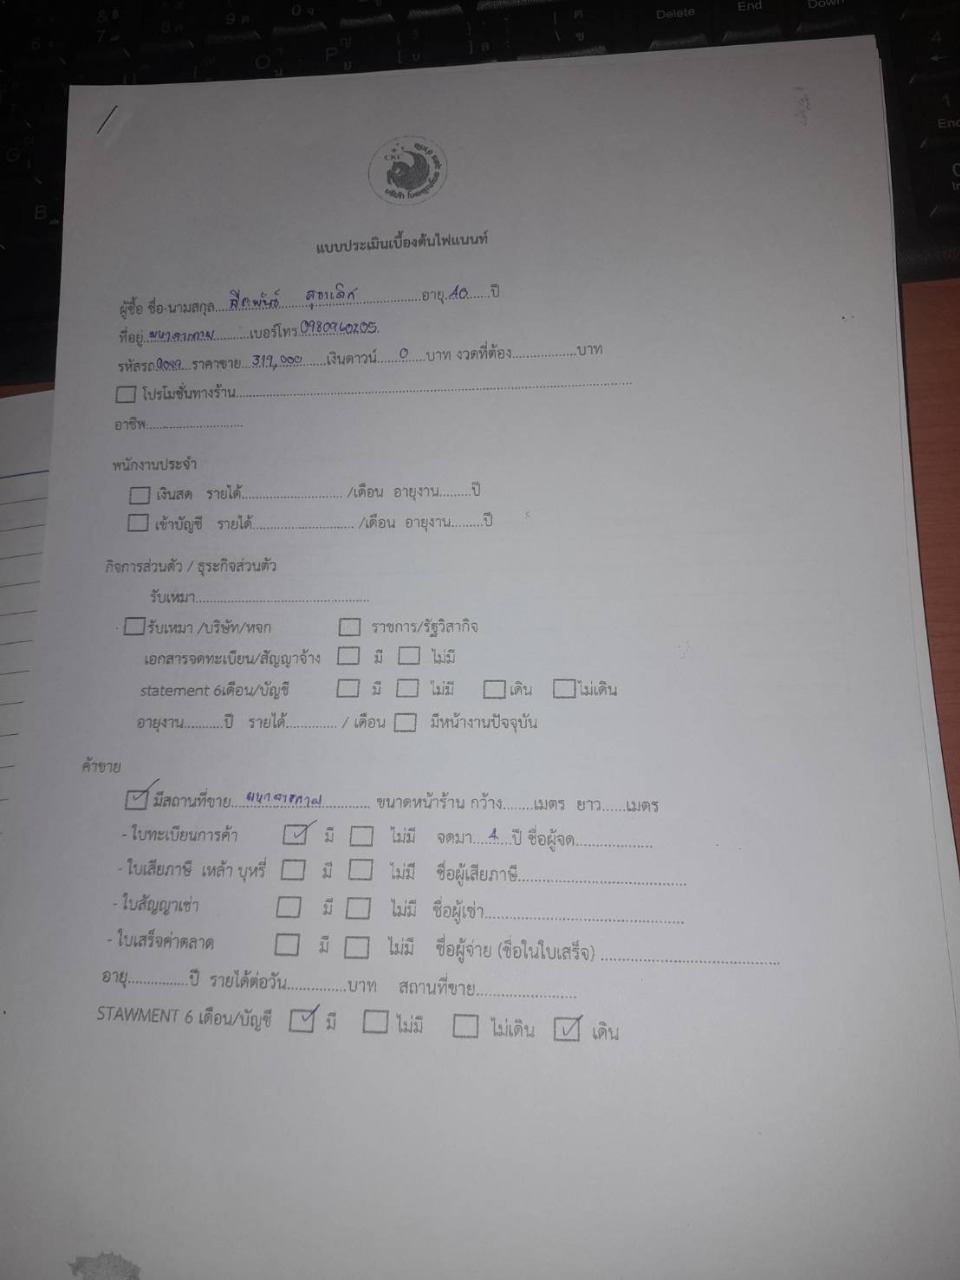 แบบประเมินเบื้องต้นไฟแนนท์
ผู้ซื้อ ชื่อ-นามสกุล...............อายุ.40......ปี
ที่อยู่.มหาสารคาม.........เบอร์โทร.0980960205.
รหัสรถ9089...ราคาขาย..319,000......เงินดาวน์....0....บาท งวดที่ต้อง...............บาท
โปรโมชั่นทางร้าน...............
อาชีพ...............
พนักงานประจำ
เงินสด รายได้............... /เดือน อายุงาน.........ปี
เข้าบัญชี รายได้............... /เดือน อายุงาน.........ปี
กิจการส่วนตัว / ธุระกิจส่วนตัว
รับเหมา...............
รับเหมา /บริษัท/หจก ราชการ/รัฐวิสากิจ
เอกสารจดทะเบียน/สัญญาจ้าง มี ไม่มี
statement 6เดือน/บัญชี มี ไม่มี เดิน ไม่เดิน
อายุงาน..........ปี รายได้............. / เดือน มีหน้างานปัจจุบัน
ค้าขาย
✓ มีสถานที่ขาย...มหาสารคาม............ ขนาดหน้าร้าน กว้าง........เมตร ยาว......เมตร
- ใบทะเบียนการค้า ✓ มี ไม่มี จดมา....4...ปี ชื่อผู้จด...............
- ใบเสียภาษี เหล้า บุหรี่ มี ไม่มี ชื่อผู้เสียภาษี...............
- ใบสัญญาเช่า มี ไม่มี ชื่อผู้เช่า...............
- ใบเสร็จค่าตลาด มี ไม่มี ชื่อผู้จ่าย (ชื่อในใบเสร็จ) ...............
อายุ...............ปี รายได้ต่อวัน...............บาท สถานที่ขาย...............
STAWMENT 6 เดือน/บัญชี ✓ มี ไม่มี ไม่เดิน ✓ เดิน